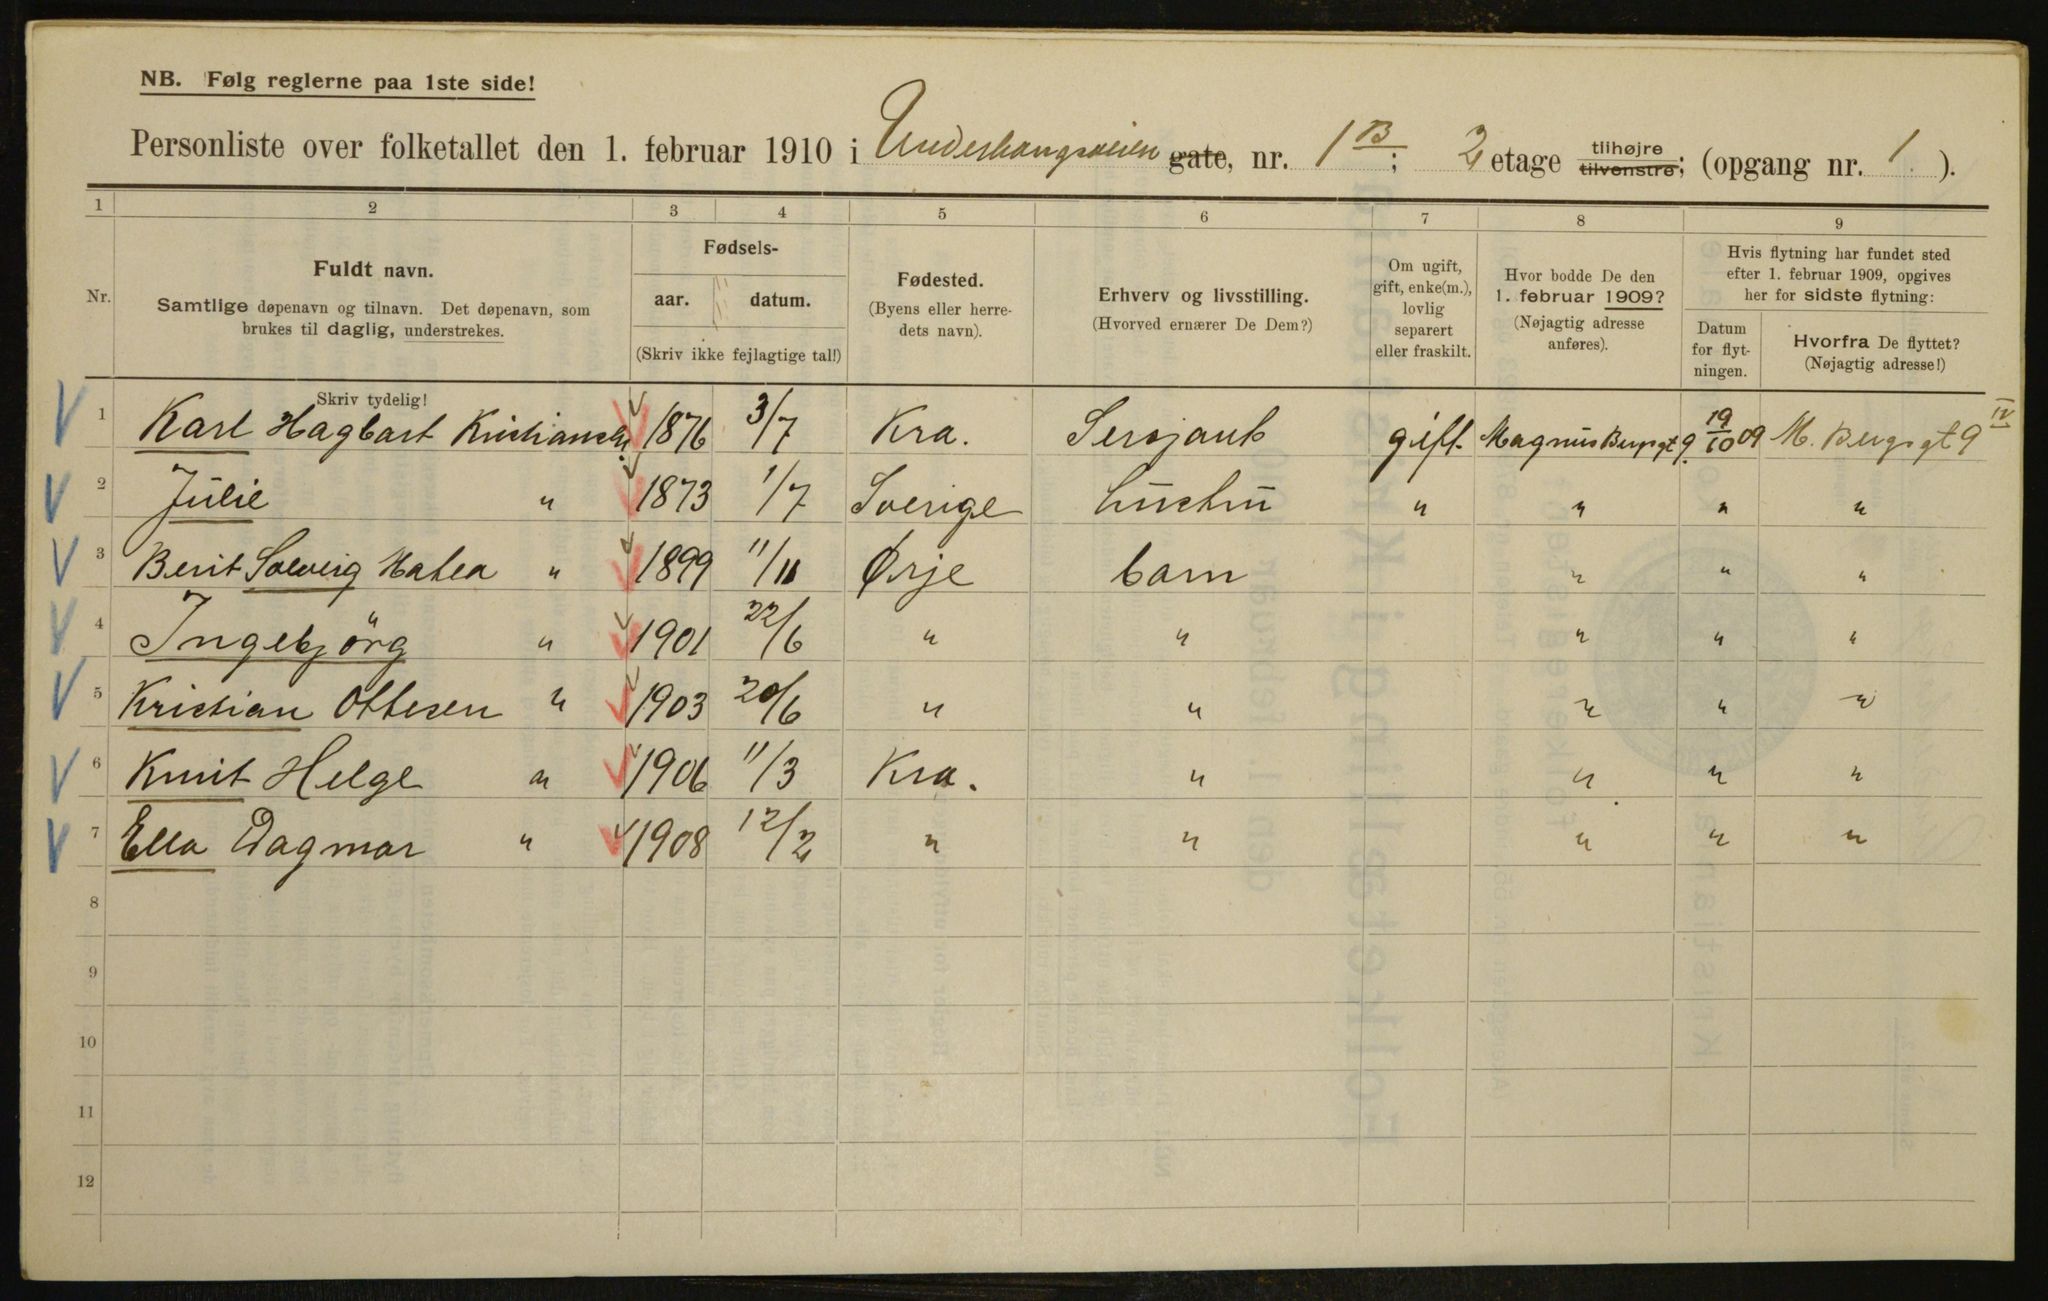 NB. Følg reglerne paa 1ste side!
Personliste over folketallet den 1. februar 1910 i Underhaugsveien gate, nr. 1 B; 2 etage tilhøjre tilvenstre; (opgang nr. 1 ).
1 2 3 4 5 6 7 8 9
Nr.
Fuldt navn.
Samtlige døpenavn og tilnavn. Det døpenavn, som
brukes til daglig, understrekes.
Skriv tydelig!
Fødsels-
aar. datum.
(Skriv ikke fejlagtige tal!)
Fødested.
(Byens eller herre-
dets navn).
Erhverv og livsstilling.
(Hvorved ernærer De Dem?)
Om ugift,
gift, enke(m.),
lovlig
separert
eller fraskilt.
Hvor bodde De den
1. februar 1909?
(Nøjagtig adresse
anføres).
Hvis flytning har fundet sted
efter 1. februar 1909, opgives
her for sidste flytning:
Datum
for flyt-
ningen.
Hvorfra De flyttet?
(Nøjagtig adresse!)
1 Karl Hagbart Kristiansen 1876 3/7 Kra. Sersjant gift. Magnus Bergsgt 9. 19/10 09 M. Bergsgt 9 IV
2 Julie " 1873 1/7 Sverige hustru " " " "
3 Berit Solveig Hatea " 1899 11/11 Ørje barn " " "
4 Ingebjörg " 1901 22/6 " " " " "
5 Kristian Ottesen " 1903 20/6 " " " " "
6 Knut Helge " 1906 11/3 Kra. " " " "
7 Ella Dagmar " 1908 12/2 " " " " "
8
9
10
11
12